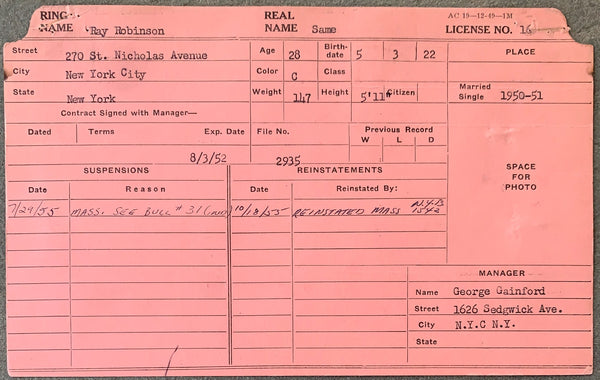 RING NAME Ray Robinson REAL NAME Same AC 19—12-49—1M LICENSE NO. 16
Street 270 St. Nicholas Avenue Age 28 Birth-date 5 3 22 PLACE
City New York City Color C Class
State New York Weight 147 Height 5'11" Citizen Married Single 1950-51
Contract Signed with Manager—
Dated Terms Exp. Date File No. Previous Record W L D
8/3/52 2935
SPACE FOR PHOTO
SUSPENSIONS REINSTATEMENTS
Date Reason Date Reinstated By:
7/29/55 MASS. SEE BULL #31 10/18/55 REINSTATED MASS
MANAGER
Name George Gainford
Street 1626 Sedgwick Ave.
City N.Y.C N.Y.
State